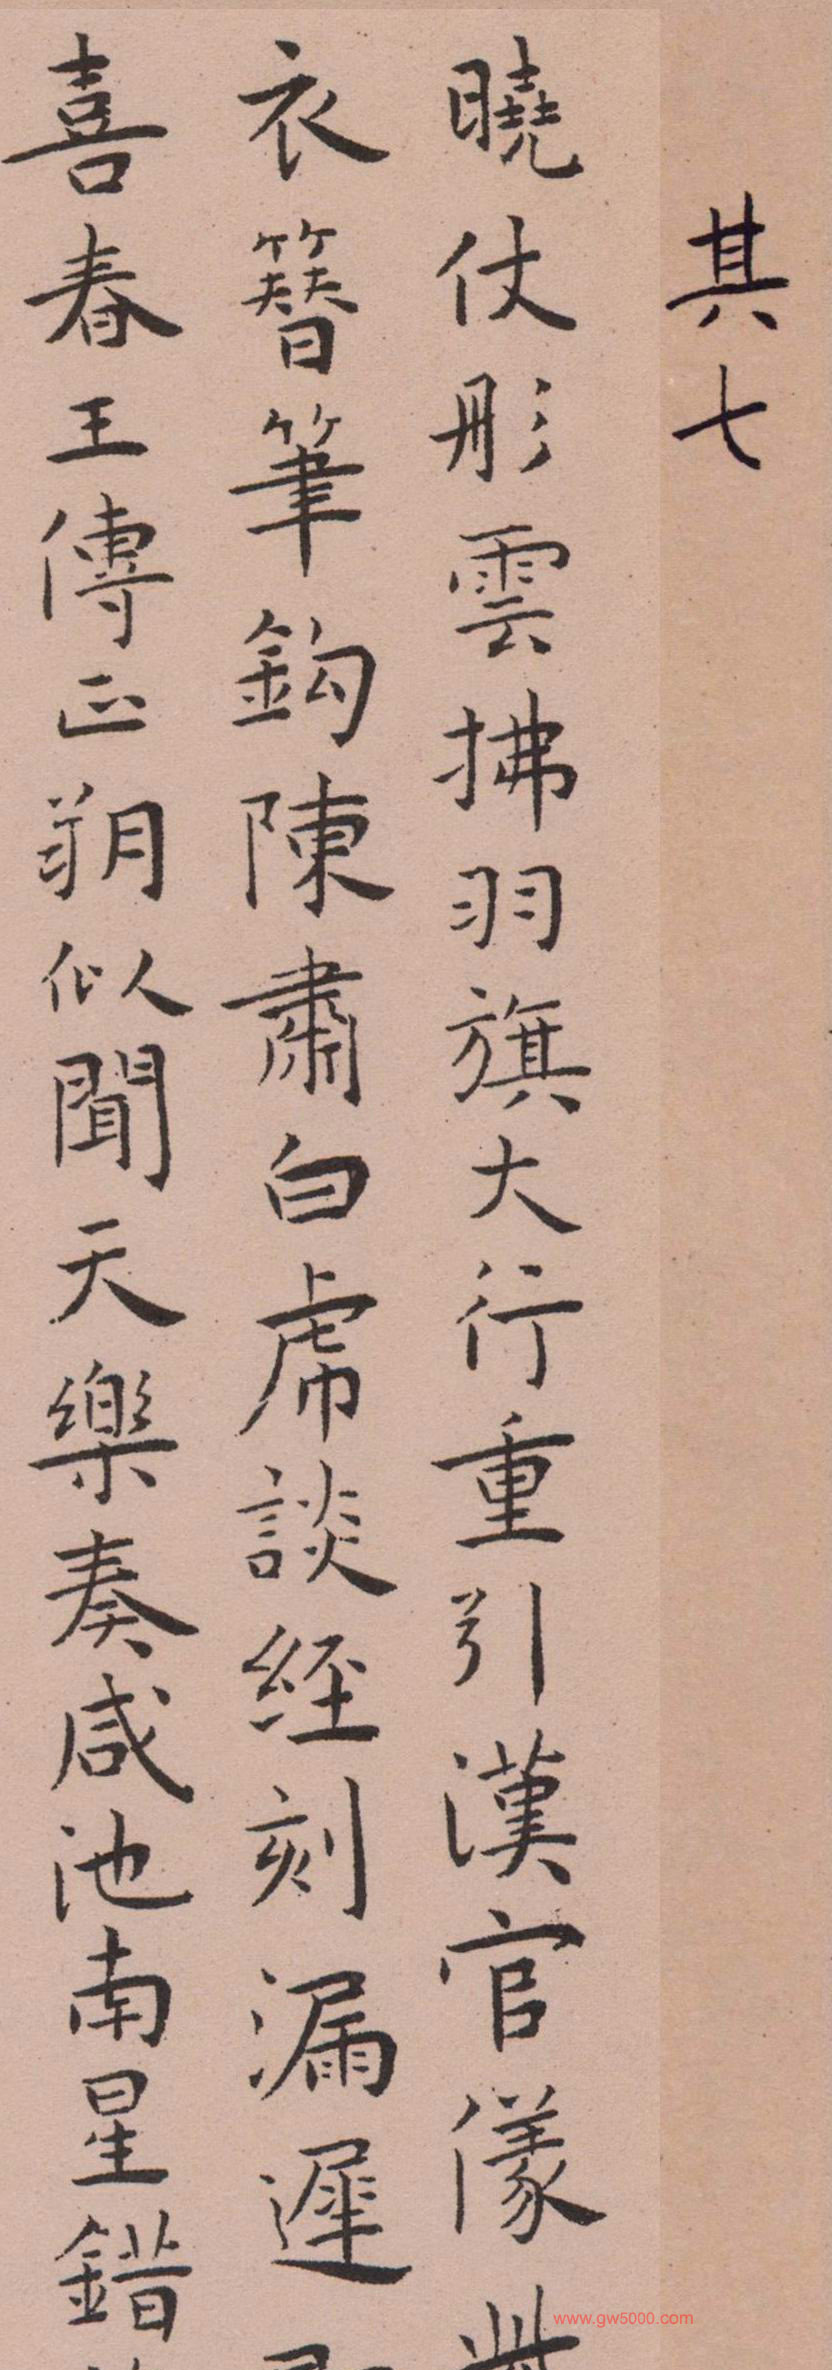 其七
曉仗彤雲拂羽旗大行重引漢官儀
衣簪筆鈎陳肅白虎談經刻漏遲
喜春王傳正朔似聞天樂奏咸池南星錯
www.gw5000.com